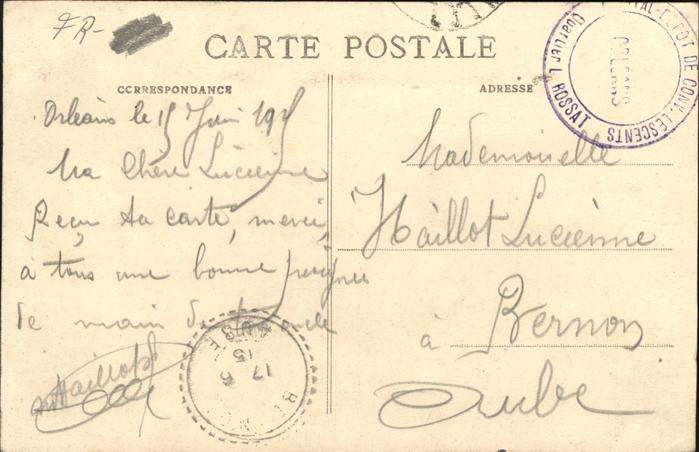 FR-
CARTE POSTALE
CORRESPONDANCE
ADRESSE
Orléans le 15 Juin 1915
Ma Chère Lucienne
Reçu ta carte, merci,
à tous une bonne poignée
de main de
Haillot
Mademoiselle
Haillot Lucienne
à Bernon
Aube
DE CONVALESCENTS
Quartier L. ROSSAT
ORLEANS
17 6
15